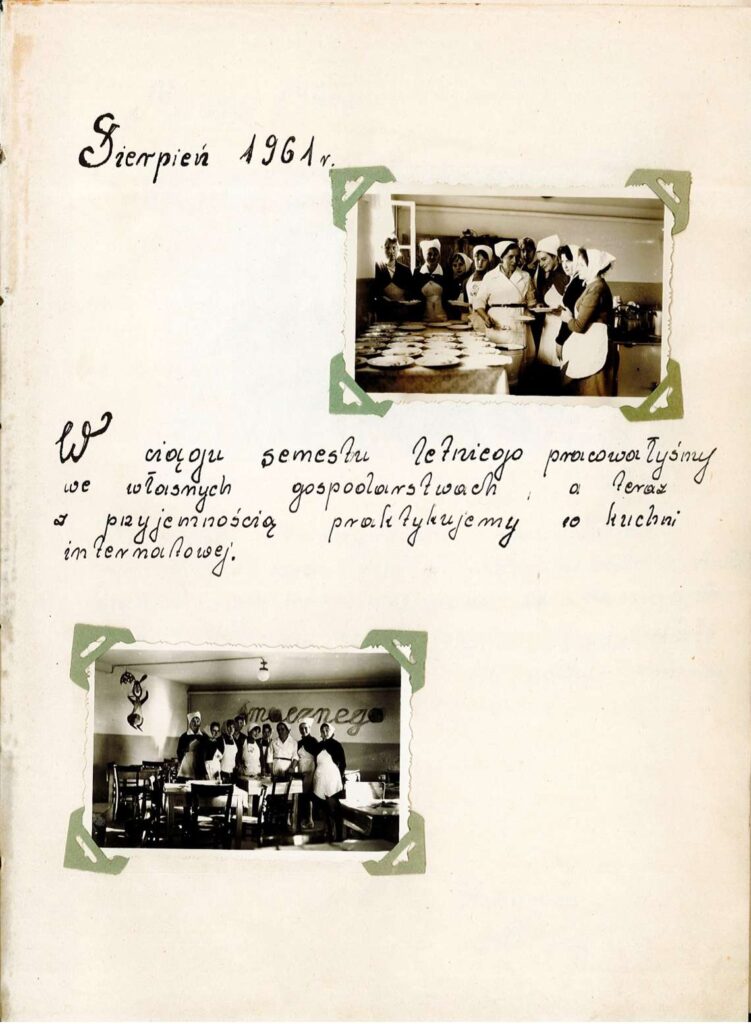 Sierpień 1961 r.
W ciągu semestu letniego pracowałyśmy
we własnych gospodarstwach, a teraz
z przyjemnością praktykujemy w kuchni
internatowej.
Smacznego